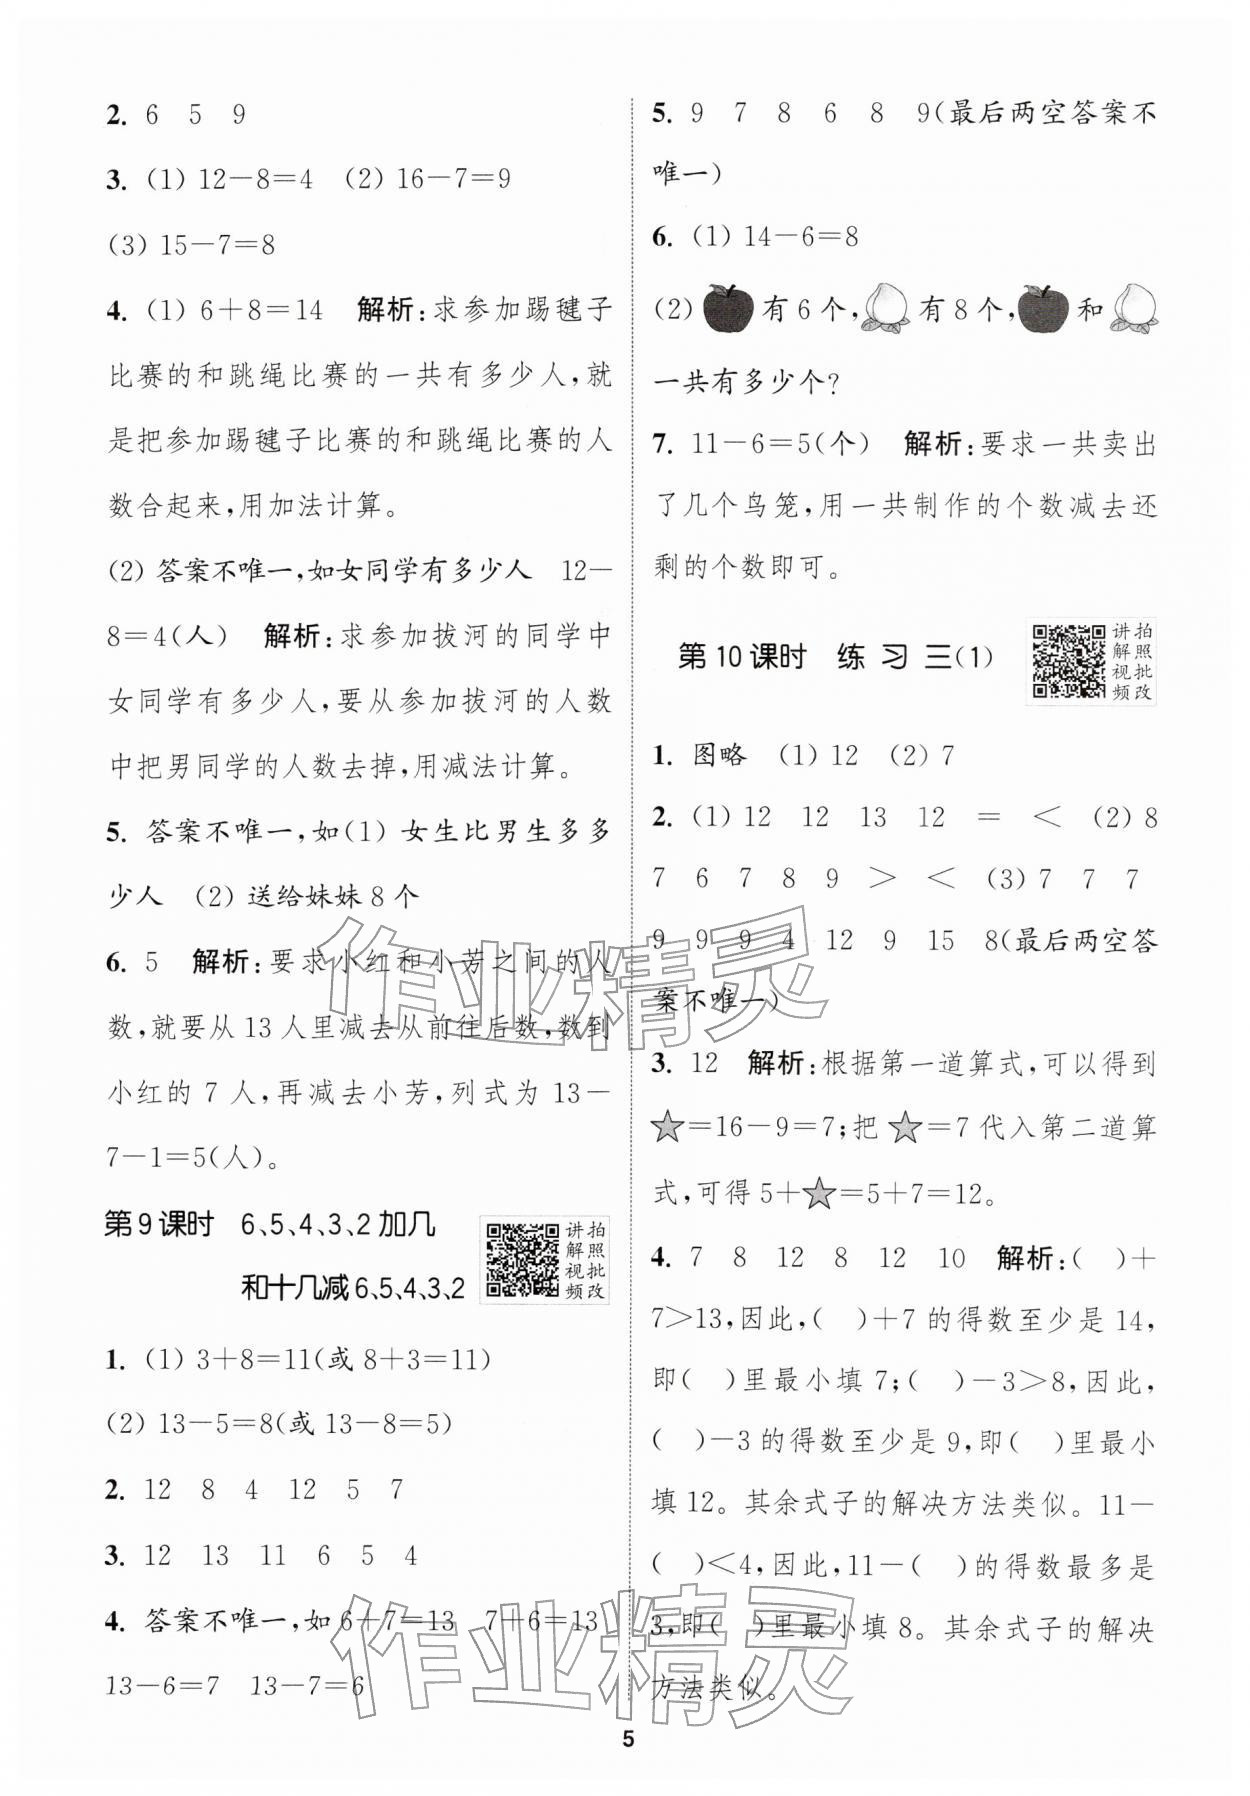 2. 6 5 9
3. (1) 12－8＝4 (2) 16－7＝9
(3) 15－7＝8
4. (1) 6＋8＝14 解析:求参加踢毽子
比赛的和跳绳比赛的一共有多少人,就
是把参加踢毽子比赛的和跳绳比赛的人
数合起来,用加法计算。
(2) 答案不唯一,如女同学有多少人 12－
8＝4(人) 解析:求参加拔河的同学中
女同学有多少人,要从参加拔河的人数
中把男同学的人数去掉,用减法计算。
5. 答案不唯一,如(1) 女生比男生多多
少人 (2) 送给妹妹8个
6. 5 解析:要求小红和小芳之间的人
数,就要从13人里减去从前往后数,数到
小红的7人,再减去小芳,列式为13－
7－1＝5(人)。
第9课时 6、5、4、3、2加几
和十几减6、5、4、3、2
讲解视频
拍照批改
1. (1) 3＋8＝11(或8＋3＝11)
(2) 13－5＝8(或13－8＝5)
2. 12 8 4 12 5 7
3. 12 13 11 6 5 4
4. 答案不唯一,如6＋7＝13 7＋6＝13
13－6＝7 13－7＝6
5. 9 7 8 6 8 9(最后两空答案不
唯一)
6. (1) 14－6＝8
(2) 有6个, 有8个, 和
一共有多少个?
7. 11－6＝5(个) 解析:要求一共卖出
了几个鸟笼,用一共制作的个数减去还
剩的个数即可。
第10课时 练习三(1)
讲解视频
拍照批改
1. 图略 (1) 12 (2) 7
2. (1) 12 12 13 12 ＝ ＜ (2) 8
7 6 7 8 9 ＞ ＜ (3) 7 7 7
9 9 9 4 12 9 15 8(最后两空答
案不唯一)
3. 12 解析:根据第一道算式,可以得到
☆＝16－9＝7;把☆＝7代入第二道算
式,可得5＋☆＝5＋7＝12。
4. 7 8 12 8 12 10 解析:( )＋
7＞13,因此,( )＋7的得数至少是14,
即( )里最小填7;( )－3＞8,因此,
( )－3的得数至少是9,即( )里最小
填12。其余式子的解决方法类似。11－
( )＜4,因此,11－( )的得数最多是
3,即( )里最小填8。其余式子的解决
方法类似。
作业精灵
作业精灵
5